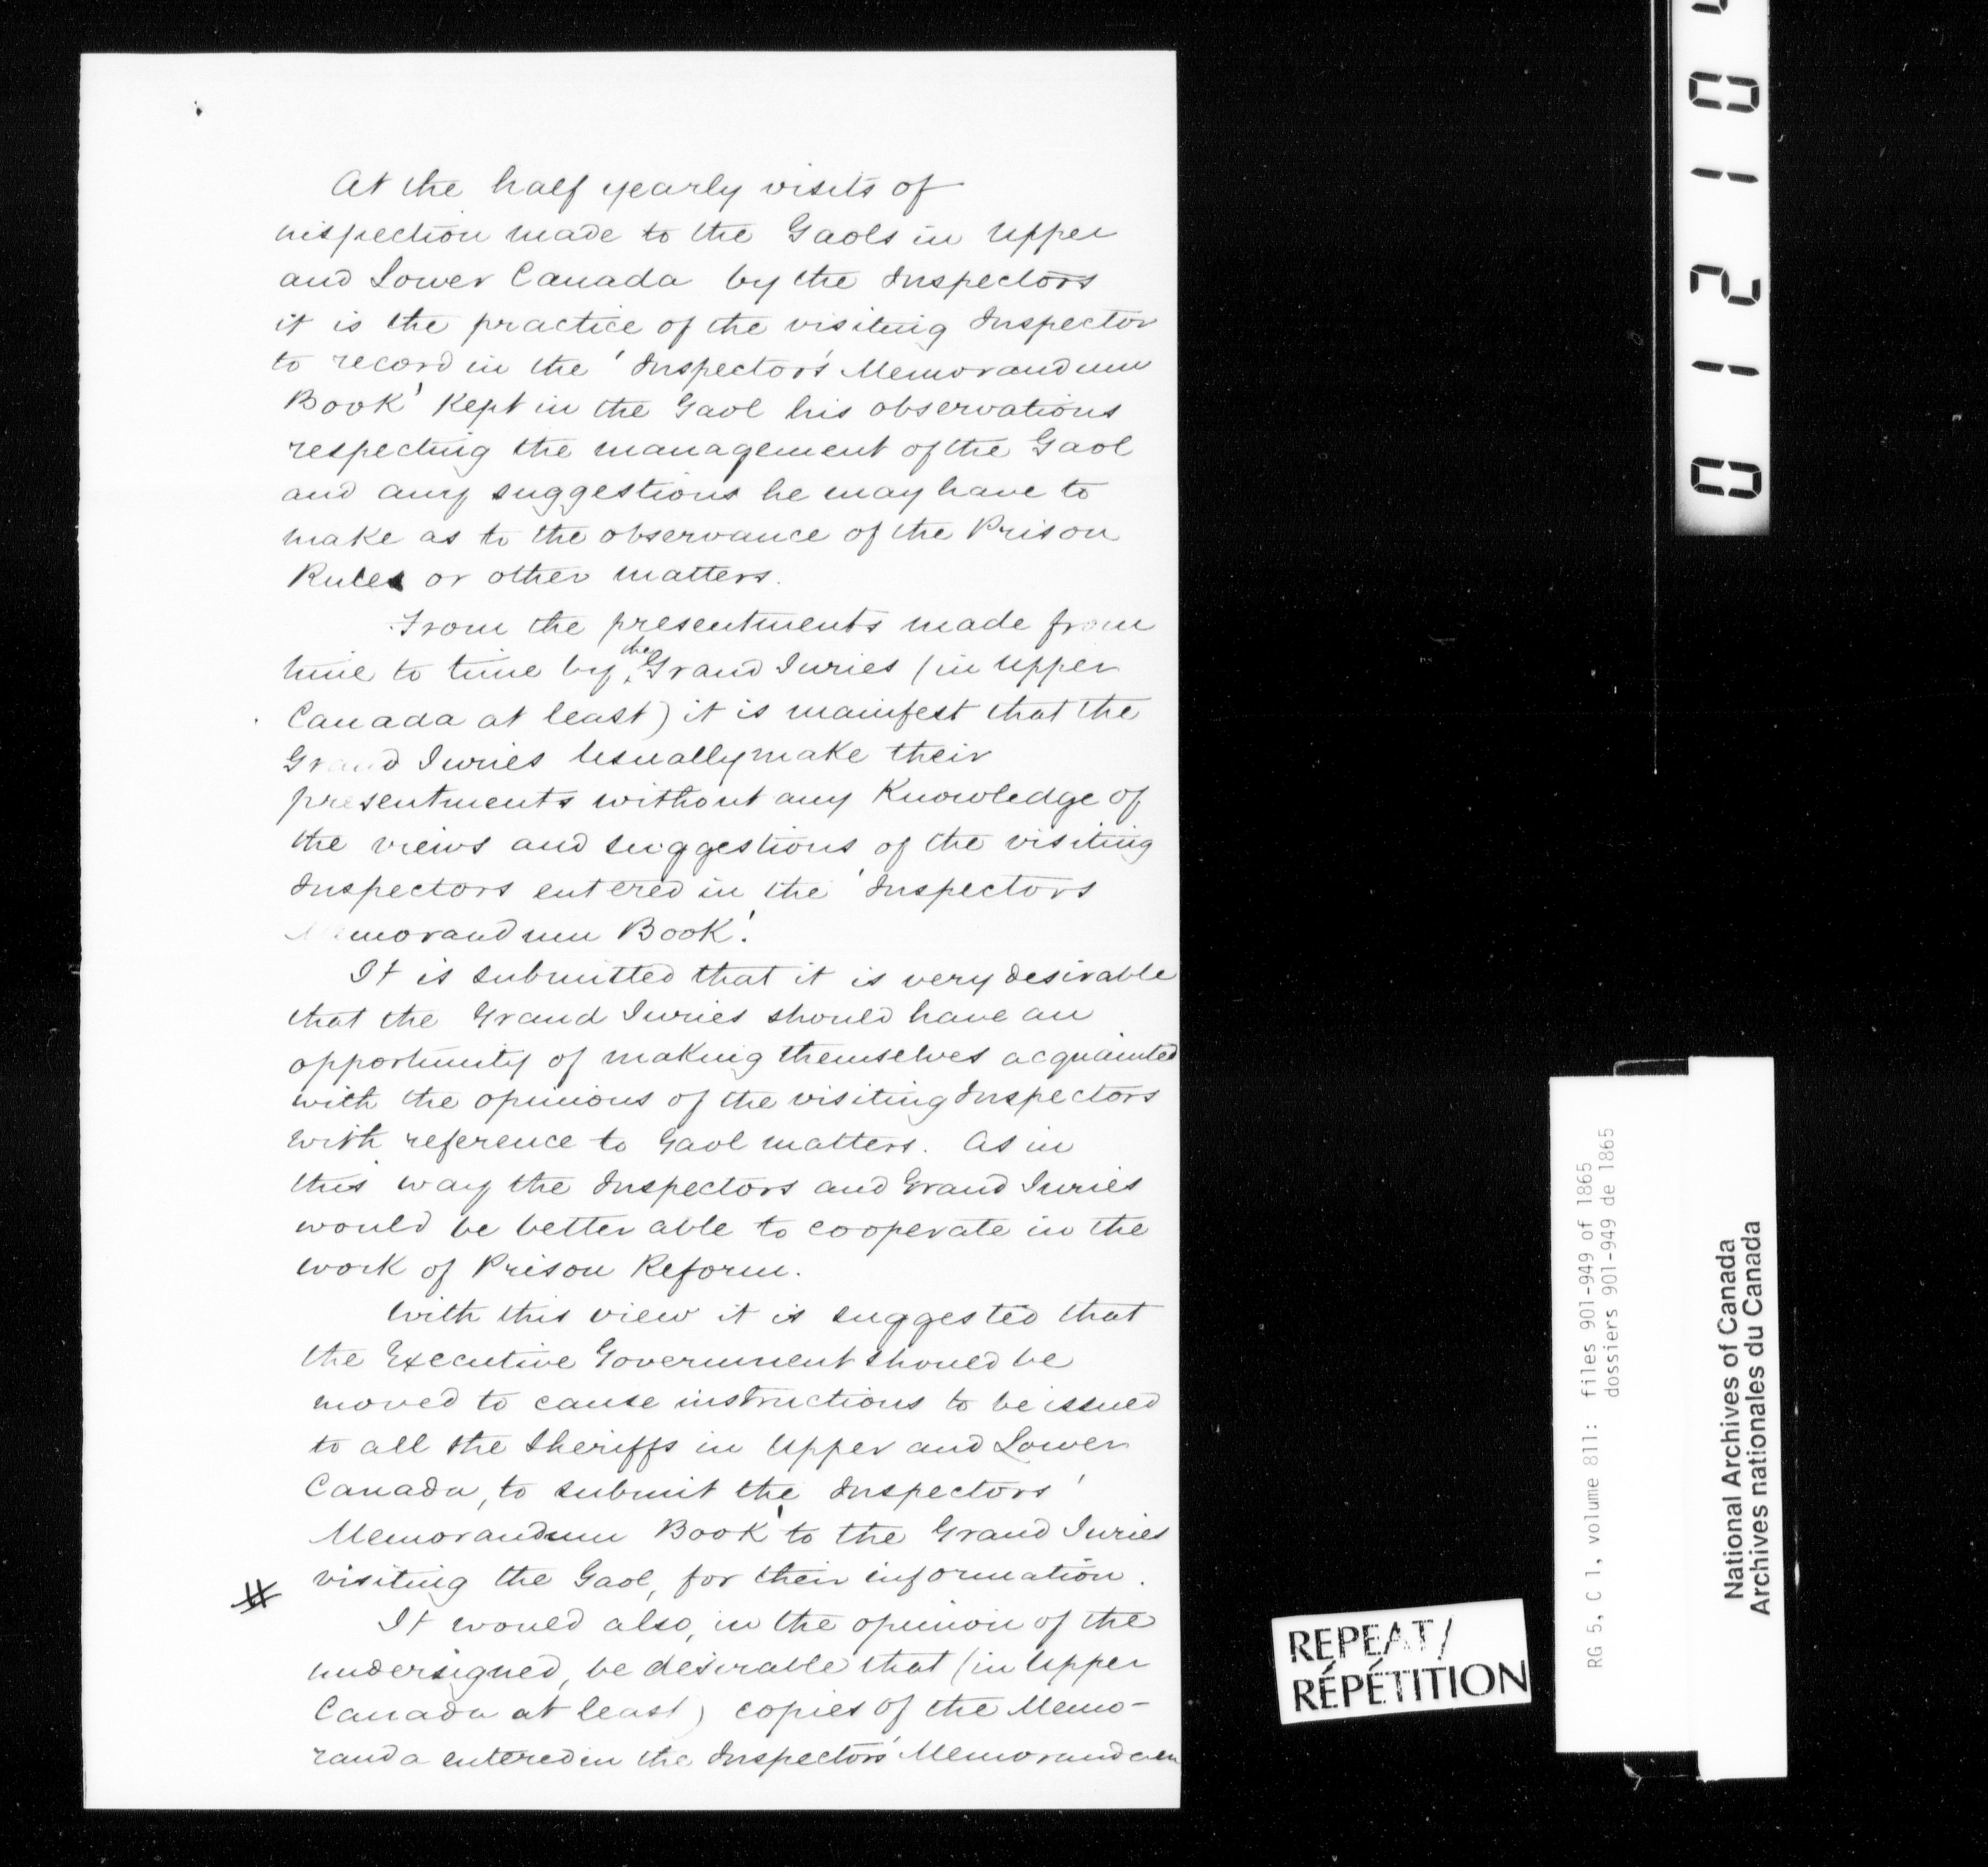 At the half yearly visits of
inspection made to the Gaols in Upper
and Lower Canada by the Inspectors
it is the practice of the visiting Inspector
to record in the 'Inspector's Memorandum
Book' kept in the Gaol his observations
respecting the management of the Gaol
and any suggestions he may have to
make as to the observance of the Prison
Rules or other matters.
From the presentments made from
time to time by the Grand Juries (in Upper
Canada at least) it is manifest that the
Grand Juries usually make their
presentments without any knowledge of
the views and suggestions of the visiting
Inspectors entered in the 'Inspectors
Memorandum Book'.
It is submitted that it is very desirable
that the Grand Juries should have an
opportunity of making themselves acquainted
with the opinions of the visiting Inspectors
with reference to Gaol matters. As in
this way the Inspectors and Grand Juries
would be better able to cooperate in the
work of Prison Reform.
With this view it is suggested that
the Executive Government should be
moved to cause instructions to be issued
to all the Sheriffs in Upper and Lower
Canada, to submit the Inspectors'
Memorandum Book' to the Grand Juries
visiting the Gaol, for their information.
It would also, in the opinion of the
undersigned, be desirable that (in Upper
Canada at least) copies of the Memo-
randa entered in the Inspectors' Memorandum
012101
REPEAT/
RÉPÉTITION
RG 5, C 1, volume 811: files 901-949 of 1865
dossiers 901-949 de 1865
National Archives of Canada
Archives nationales du Canada